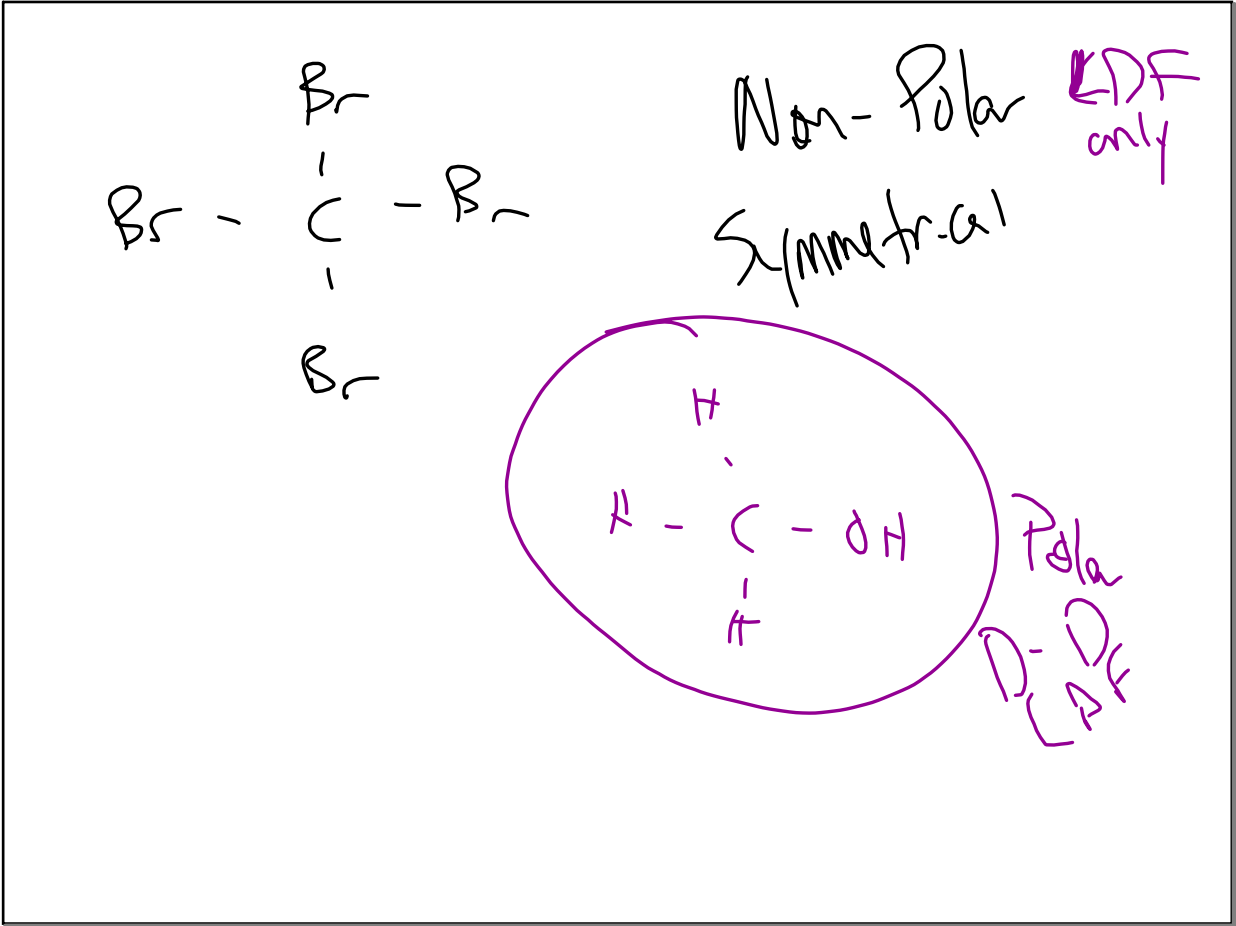 Br
Br - C - Br
Br
Non-Polar
LDF
only
Symmetrical
H
H - C - OH
H
Polar
D-D
LDF